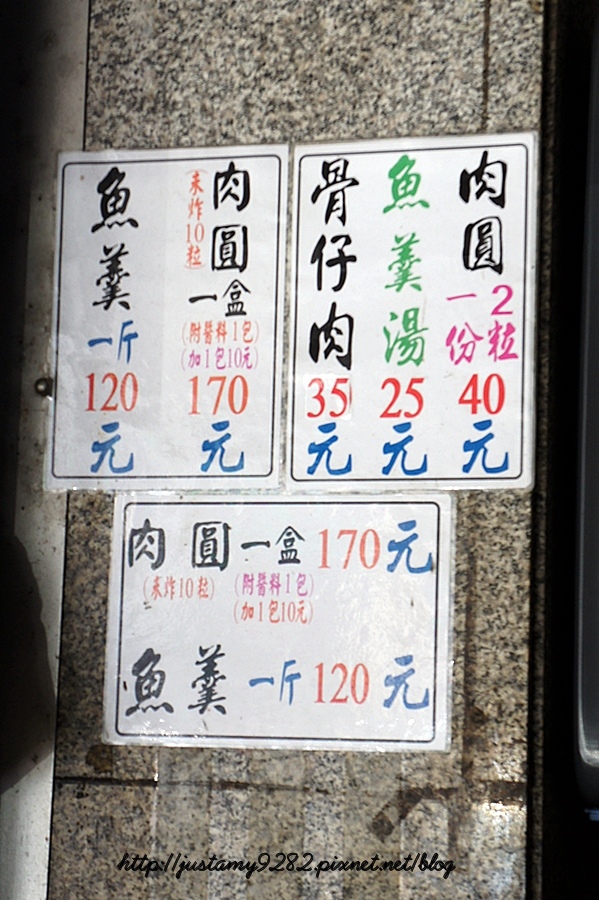 肉圓
一份
2粒
40
元
魚羹湯
25
元
骨仔肉
35
元
肉圓
未炸10粒
一盒
(附醬料1包)
(加1包10元)
170
元
魚羹
一斤
120
元
肉圓一盒170元
(未炸10粒)
(附醬料1包)
(加1包10元)
魚羹 一斤120元
http://justamy9282.pixnet.net/blog